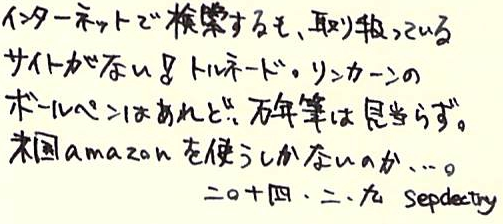 インターネットで検索するも、取り扱っている
サイトがない!トルネード。リンカーンの
ボールペンはあれど、万年筆は見当らず。
米国amazonを使うしかないのか…。
二〇十四.二.九 sepdectry